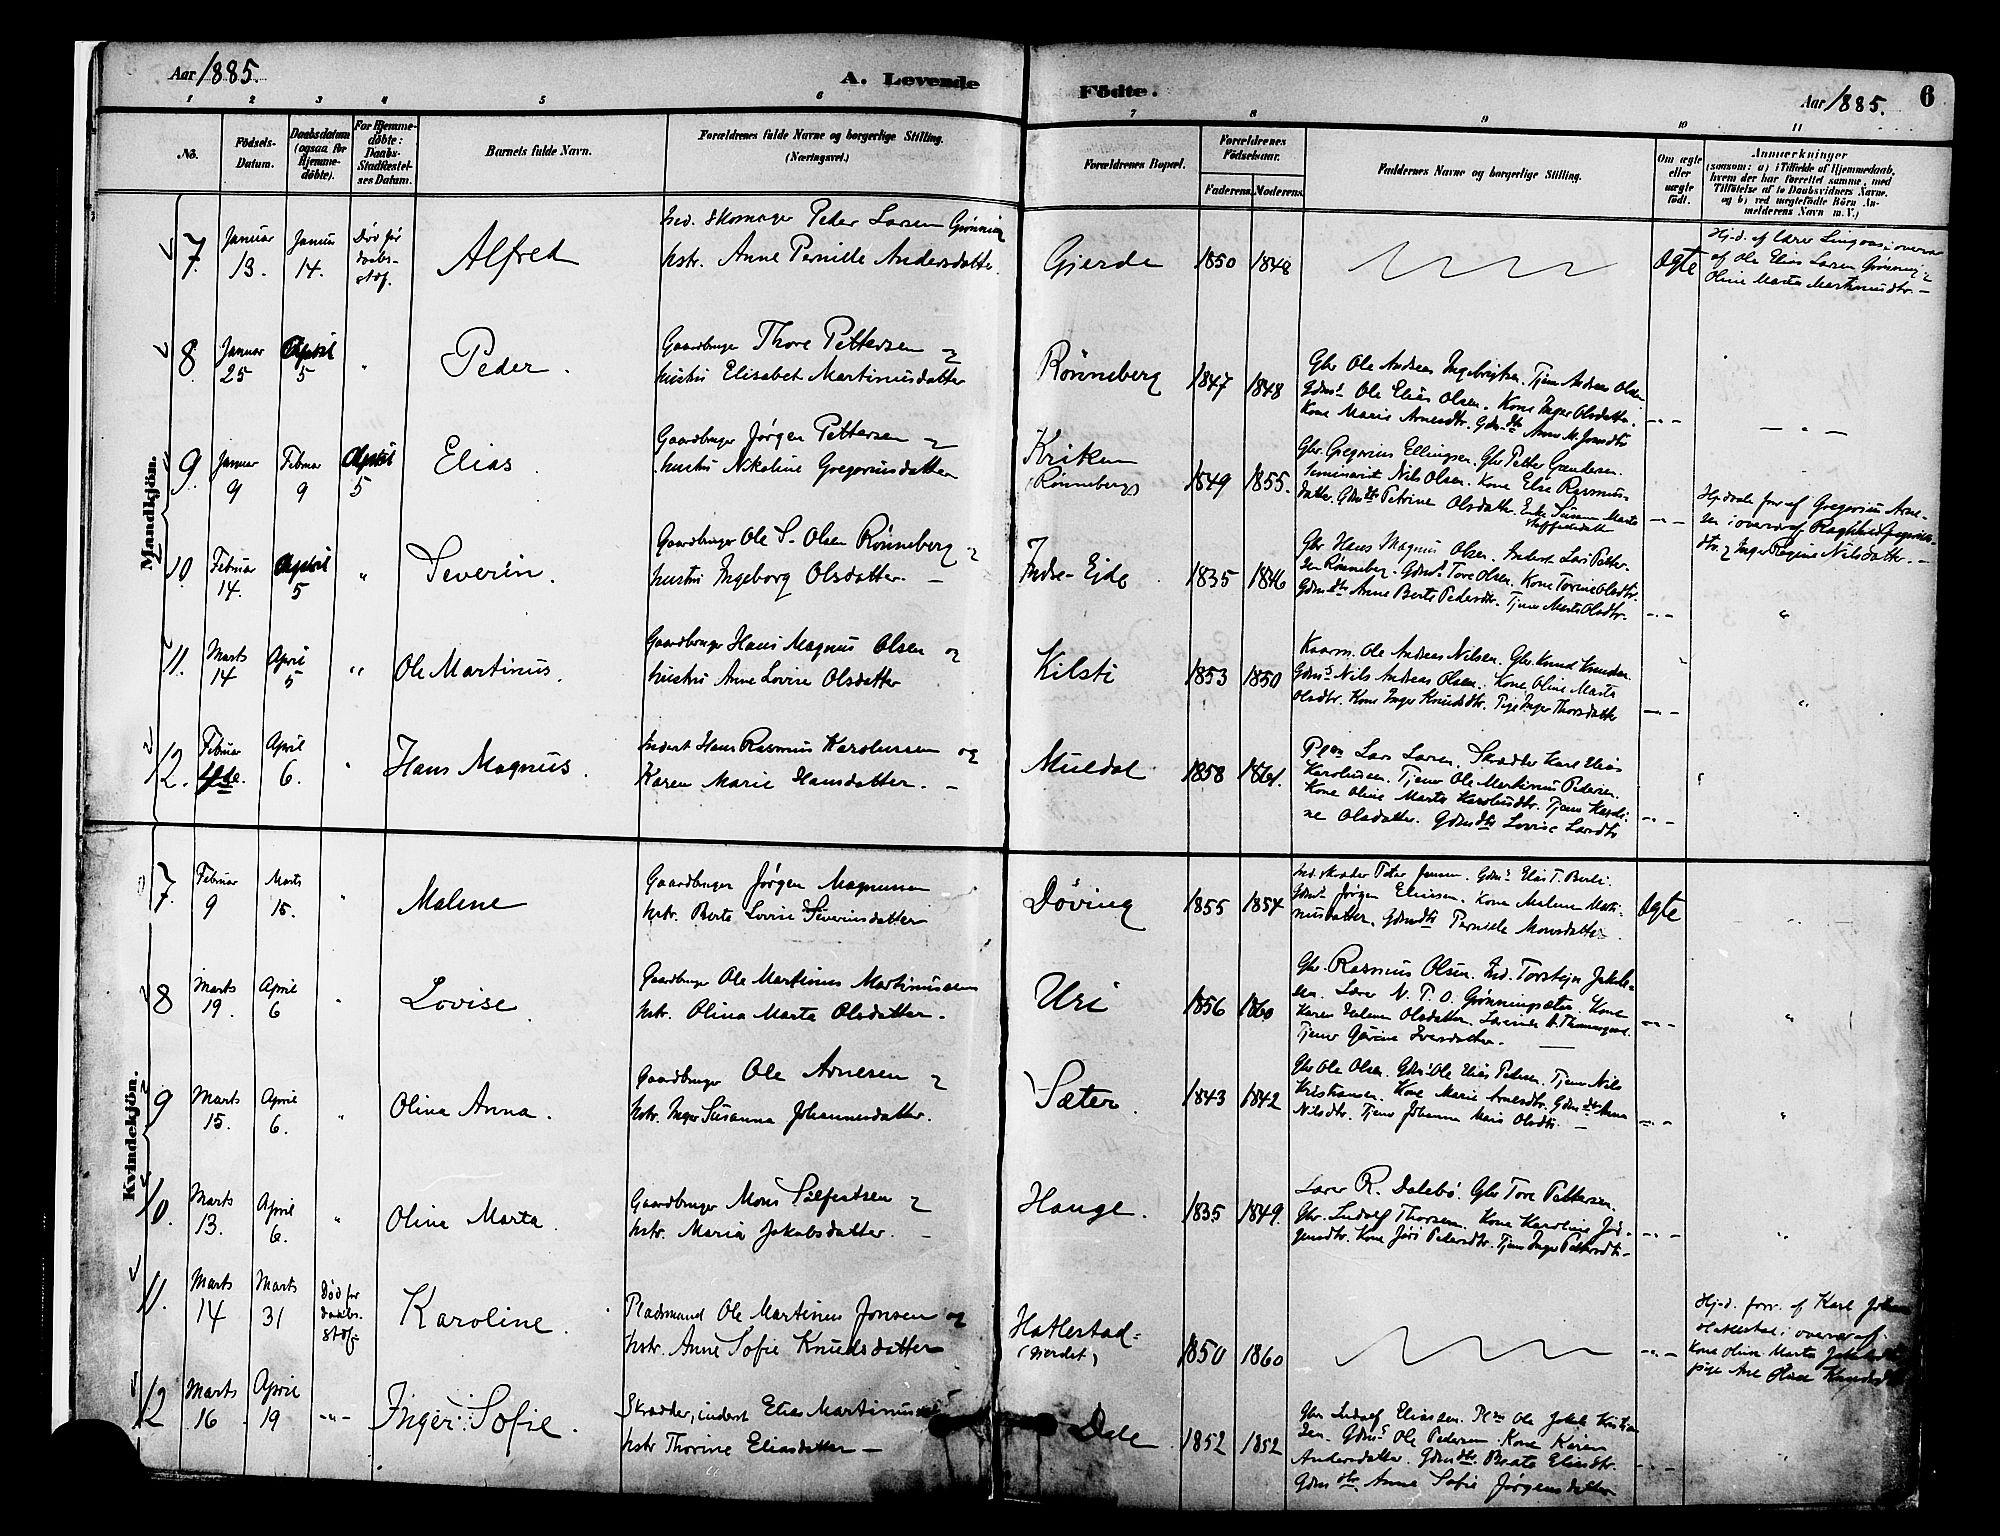 Aar 1885.
A. Levende
Födte.
Aar 1885.
6
1 2 3 4 5 6 7 8 9 10 11
No.
Födsels-
Datum.
Daabsdatum
(ogsaa for
Hjemme-
döbte).
For Hjemme-
döbte:
Daabs-
Stadfæstel-
ses Datum.
Barnets fulde Navn.
Forældrenes fulde Navne og borgerlige Stilling.
(Næringsvei.)
Forældrenes Bopæl.
Forældrenes
Födselsaar.
Faderens. Moderens.
Faddernes Navne og borgerlige Stilling.
Om ægte
eller
uægte
födt.
Anmærkninger
(saasom: a) i Tilfælde af Hjemmedaab,
hvem der har forrettet samme, med
Tilföielse af to Daabsvidners Navne.
og b) ved uægtefödte Börn An-
melderens Navn m. V.)
Mandkjön.
7. Januar 13. Januar 14. Död før daabs-stdf. Alfred
Ind. Skomager Peder Larsen Grønning
hstr. Anne Pernille Andersdatter
Gjerde 1850 1848 Ægte
Hj.d. af Lærer Lingaas i overvær
af Ole Elias Larsen Grønning
Oline Marta Martinusdtr. -
8. Januar 25 April 5 " Peder.
Gaardbruger Thore Pettersen
hustru Elisabet Martinusdatter
Rønneberg 1847 1848
Gbr Ole Andreas Ingebrigtsen. Tjener Andreas Olsen
Gdms. Ole Elias Olsen. Kone Inger Olsdatter.
Kone Marie Arnesdtr. Gdm.dtr Anne M. -"-
9. Januar 9 Februar 9 April 5 Elias.
Gaardbruger Jørgen Pettersen
hustru Nikoline Gregoriusdatter
Kriken (Rønneberg) 1849 1855.
Gbr. Gregorius Ellingsen. Gbr Petter
Seminarist Nils Olsen. Kone Else Rasmus-
datter. Gdm.dtr Petrine Olsdatter. Enke Susanne Marta -"-
Hj.daab forr af Gregorius Arne-
sen i overvær af Raghild
dtr. Inger Regine Nilsdatter. -
10. Februar 14. April 5 " Severin.
Gaardbruger Ole S. Olsen Rønneberg
hustru Ingeborg Olsdatter. -
Indre-Ejde 1835 1846
Gbr Hans Magnus Olsen. Inderst Lars Petter-
sen Rønneberg. Gdms. Tore Olsen. Kone Torine Olsdtr.
Gdmsdtr Anne Berte Pedersdtr. Tjener Marte Olsdtr. -"- "
11. Marts 14 April 5 " Ole Martinus.
Gaardbruger Hans Magnus Olsen og
hustru Anne Lovise Olsdatter
Kilsti 1853 1850
Kaarm. Ole Andreas Nilsen. Gbr Knud Knudsen
Gdms Nils Andreas Olsen. Kone Oline Marta
Olsdtr. Kone Inger Knudsdtr. Pige Inger Thorsdatter -"- "
12. Februar April 6. " Hans Magnus.
Inderst Hans Rasmus Karolussen og
Karen Marie Hansdatter. -
Muldal 1858 1861.
Plm Lars Larsen. Skræder Karl Elias
Karolussen. Tjener Ole Martinus Pedersen.
Kone Oline Marta Karolusdtr. Tjener Karoli-
ne Olsdatter. Gdmsdtr Lovise Larsdtr -"- "
Kvindekjön.
7. Februar 9 Marts 15. " Malene
Gaardbruger Jørgen Magnussen
hstr. Berte Lovise Severinsdatter
Døving 1855 1854
Ind. skræder Peter Jensen. Gdms Elias T. Berli.
Gdms Jørgen Eliassen. Kone Malene Marti-
nusdatter. Gdmsdtr Pernille Monsdatter. Ægte "
8 Marts 19. April 6 " Lovise
Gaardbruger Ole Martinus Martinussen
hstr. Olina Marta Olsdatter.
Uri 1856 1860
Gbr. Rasmus Olsen. Ind. Torstein Jakob-
sen. Lærer N. P. O. Grønningsæter. Kone
Karen Helene Olsdatter. Lærerinde
Tjener Gurine Iversdatter. -"- "
9 Marts 15. April 6. " Olina Anna.
Gaardbruger Ole Arnesen
hstr. Inger Susanna Johannesdatter.
Sæter. 1843 1842
Gbr Ole Olsen. Gdms Ole Elias Petersen. Tjener Nils
Kristiansen. Kone Marie Arnesdtr. Gdmsdtr Anna
Nilsdtr. Tjener Johanne Marie Olsdtr. - -"- "
10. Marts 13. April 6. " Olina Marta.
Gaardbruger Mons Silfestsen
hstr. Maria Jakobsdatter. -
Hauge. 1835 1849.
Lærer R. Dalebø. Gbr Tore Pettersen.
Gbr. Ludolf Thorsen. Kone Karoline Jør-
gensdtr. Kone Jøri Petersdtr. Tjener Inger Pettersdtr. -"- "
11. Marts 14 Marts 31 Død før daabs-stdf. Karoline.
Pladsmand Ole Martinus Jonsen og
hstr. Anne Sofie Knudsdatter
Hatlestad- (Gjerdet) 1850 1860 -"-
Hj-d. forr. af Karl Johan
Hatlestad i overvær af
Kone Oline Marta
pige Ane Oline Knudsdtr
12 Marts 16 April 19 -"- Inger Sofie.
Skrædder, inderst Elias Martinussen
hstr Thorine Eliasdatter -
Dale. 1852 1852
Gbr Ludolf Eliassen. Plm Ole Jakob Kristian-
sen. Gdms Ole Pedersen. Kone Karen
Andersdatter. Gdmsdtr. Beate Eliasdtr.
Gdmsdtr. Anne Sofie Jørgensdatter -"-